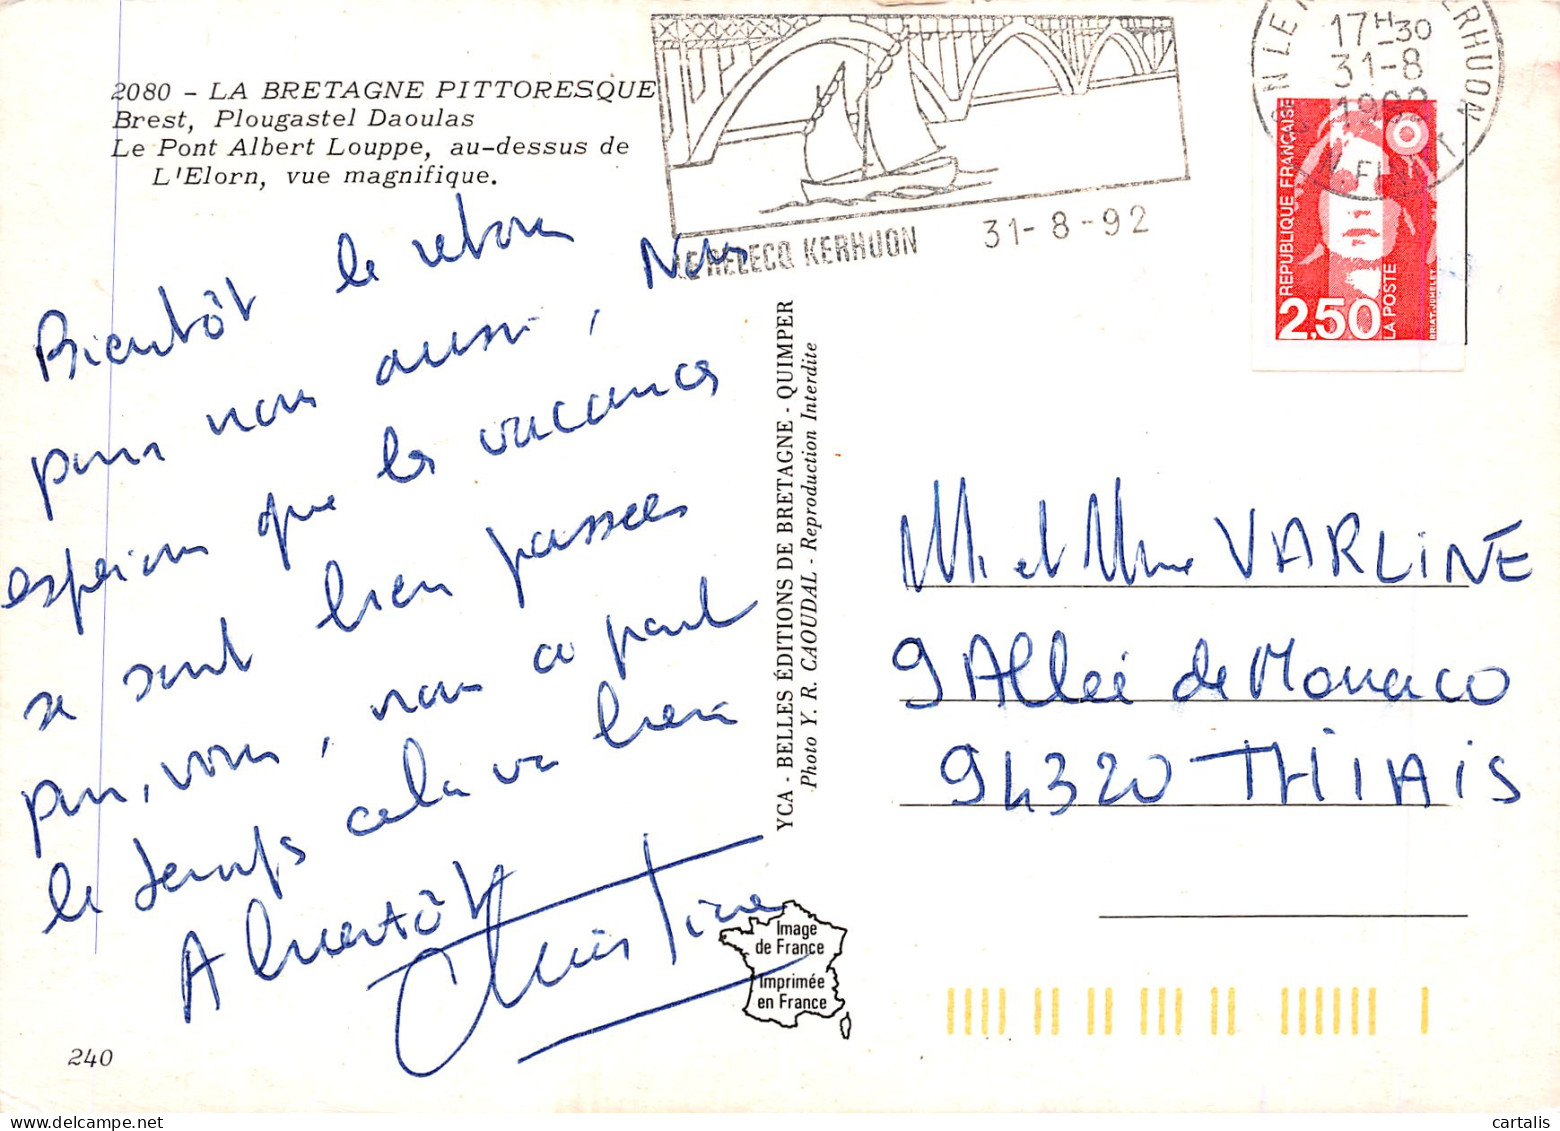 2080 - LA BRETAGNE PITTORESQUE
Brest, Plougastel Daoulas
Le Pont Albert Louppe, au-dessus de
L'Elorn, vue magnifique.
LE RELECQ KERHUON
31-8-92
17H-30
31-8
1992
REPUBLIQUE FRANÇAISE
2,50
LA POSTE
BRIAT-JUMELET
Bientôt le retour
pour nous aussi, Nous
espérons que les vacances
se sont bien passées
pour vous, nous a part
le temps cela va bien
A bientôt
Christine
YCA - BELLES ÉDITIONS DE BRETAGNE - QUIMPER
Photo Y. R. CAOUDAL - Reproduction Interdite
M. et Mme VARLINE
9 Allée de Monaco
94320 THIAIS
Image
de France
Imprimée
en France
240
cartalis